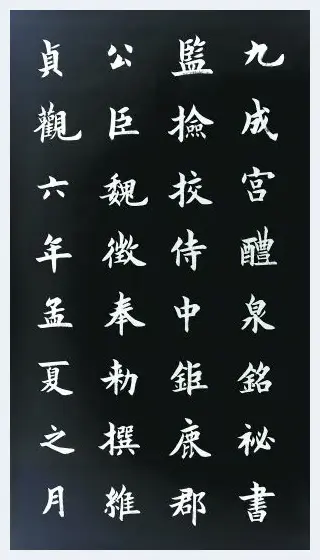 九成宮醴泉銘祕書
監撿挍侍中鉅鹿郡
公臣魏徵奉勅撰維
貞觀六年孟夏之月